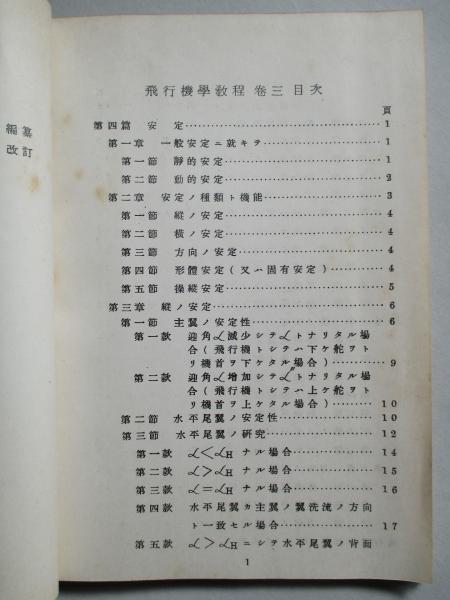 編纂
改訂
飛行機學敎程 卷三 目次
頁
第四篇 安定………1
第一章 一般安定ニ就キテ………1
第一節 靜的安定………1
第二節 動的安定………2
第二章 安定ノ種類ト機能………3
第一節 縱ノ安定………4
第二節 橫ノ安定………4
第三節 方向ノ安定………4
第四節 形體安定(又ハ固有安定)………4
第五節 操縱安定………5
第三章 縱ノ安定………6
第一節 主翼ノ安定性………6
第一款 迎角α減少シテα'トナリタル場
合(飛行機トシテハ下ケ舵ヲト
リ機首ヲ下ケタル場合)………9
第二款 迎角α增加シテα"トナリタル場
合(飛行機トシテハ上ケ舵ヲト
リ機首ヲ上ケタル場合)………10
第二節 水平尾翼ノ安定性………10
第三節 水平尾翼ノ硏究………12
第一款 α<αH ナル場合………14
第二款 α>αH ナル場合………15
第三款 α=αH ナル場合………16
第四款 水平尾翼カ主翼ノ翼洗流ノ方向
ト一致セル場合………17
第五款 α>αHニシテ水平尾翼ノ背面
1